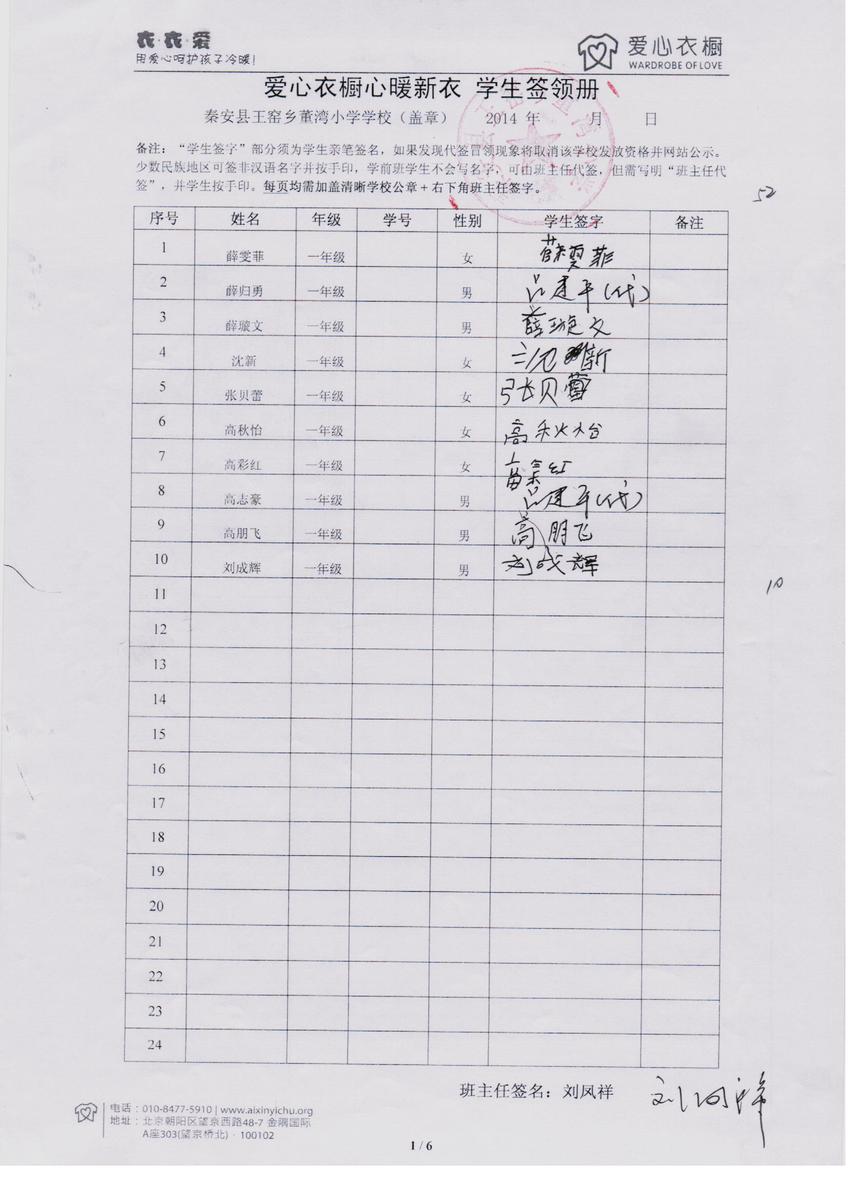 衣·衣·爱
用爱心呵护孩子冷暖!
爱心衣橱
WARDROBE OF LOVE
爱心衣橱心暖新衣 学生签领册
秦安县王窑乡董湾小学学校（盖章） 2014 年 月 日
备注：“学生签字”部分须为学生亲笔签名，如果发现代签冒领现象将取消该学校发放资格并网站公示。
少数民族地区可签非汉语名字并按手印，学前班学生不会写名字，可由班主任代签，但需写明“班主任代
签”，并学生按手印。每页均需加盖清晰学校公章+右下角班主任签字。
52
序号 姓名 年级 学号 性别 学生签字 备注
1 薛雯菲 一年级 女 薛雯菲
2 薛归勇 一年级 男 吕建平(代)
3 薛璇文 一年级 男 薛璇文
4 沈新 一年级 女 沈新
5 张贝蕾 一年级 女 张贝蕾
6 高秋怡 一年级 女 高秋怡
7 高彩红 一年级 女 高彩红
8 高志豪 一年级 男 吕建平(代)
9 高朋飞 一年级 男 高朋飞
10 刘成辉 一年级 男 刘成辉
10
11
12
13
14
15
16
17
18
19
20
21
22
23
24
班主任签名：刘凤祥 刘凤祥
电话：010-8477-5910 | www.aixinyichu.org
地址：北京朝阳区望京西路48-7 金隅国际
A座303(望京桥北)·100102
1 / 6